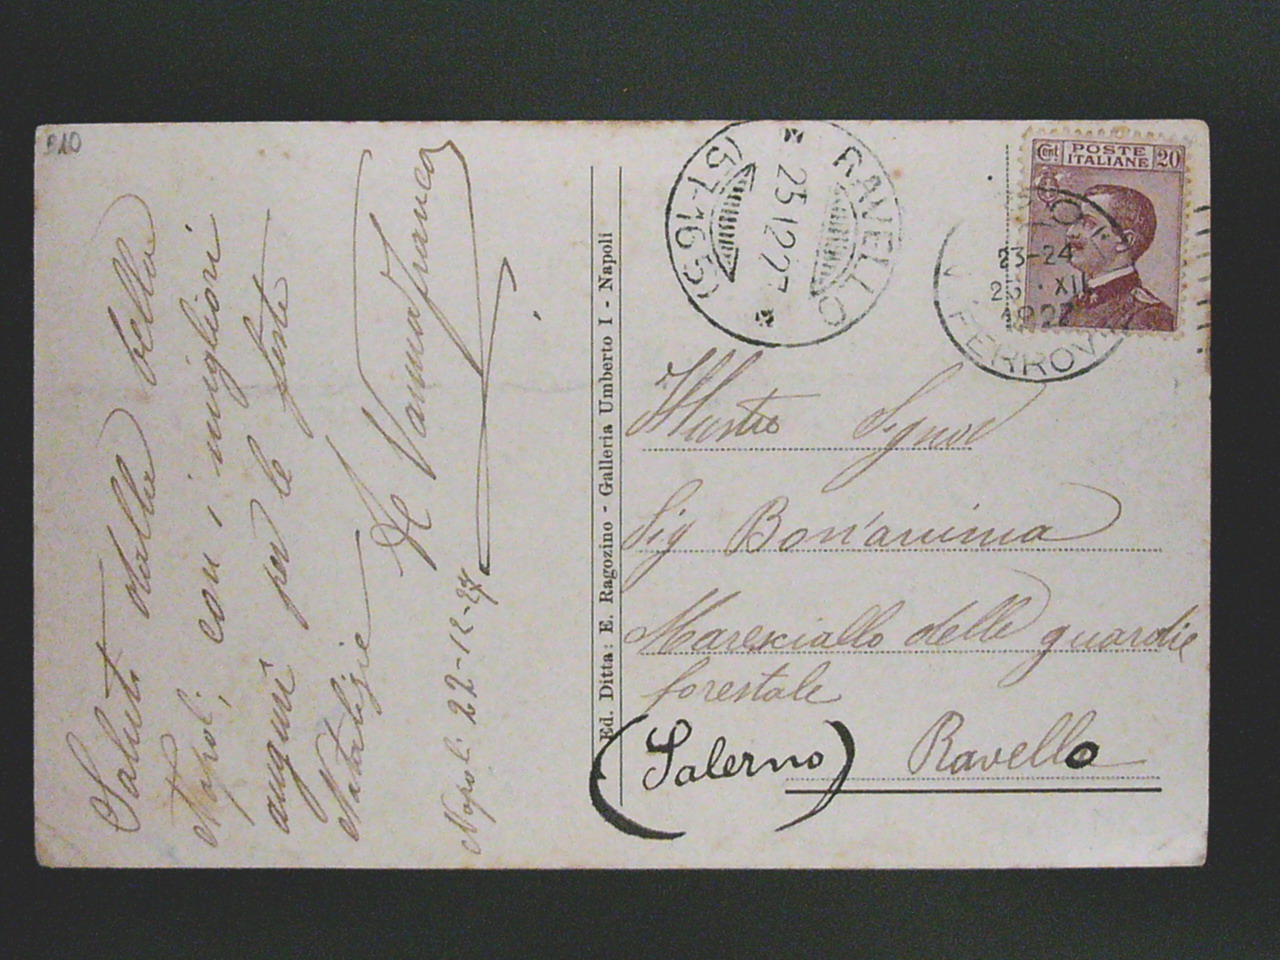 910
Saluti dalla bella
Napoli, con i migliori
auguri per le feste
Natalizie
Napoli 22-12-27
Ed. Ditta: E. Ragozino - Galleria Umberto I - Napoli
RAVELLO
25.12.27
(57-165)
Cent POSTE 20
ITALIANE
23-24
XII
1927
FERROVIA
Illustre Signor
Sig Bon'anima
Maresciallo delle guardie
forestale
(Salerno) Ravello